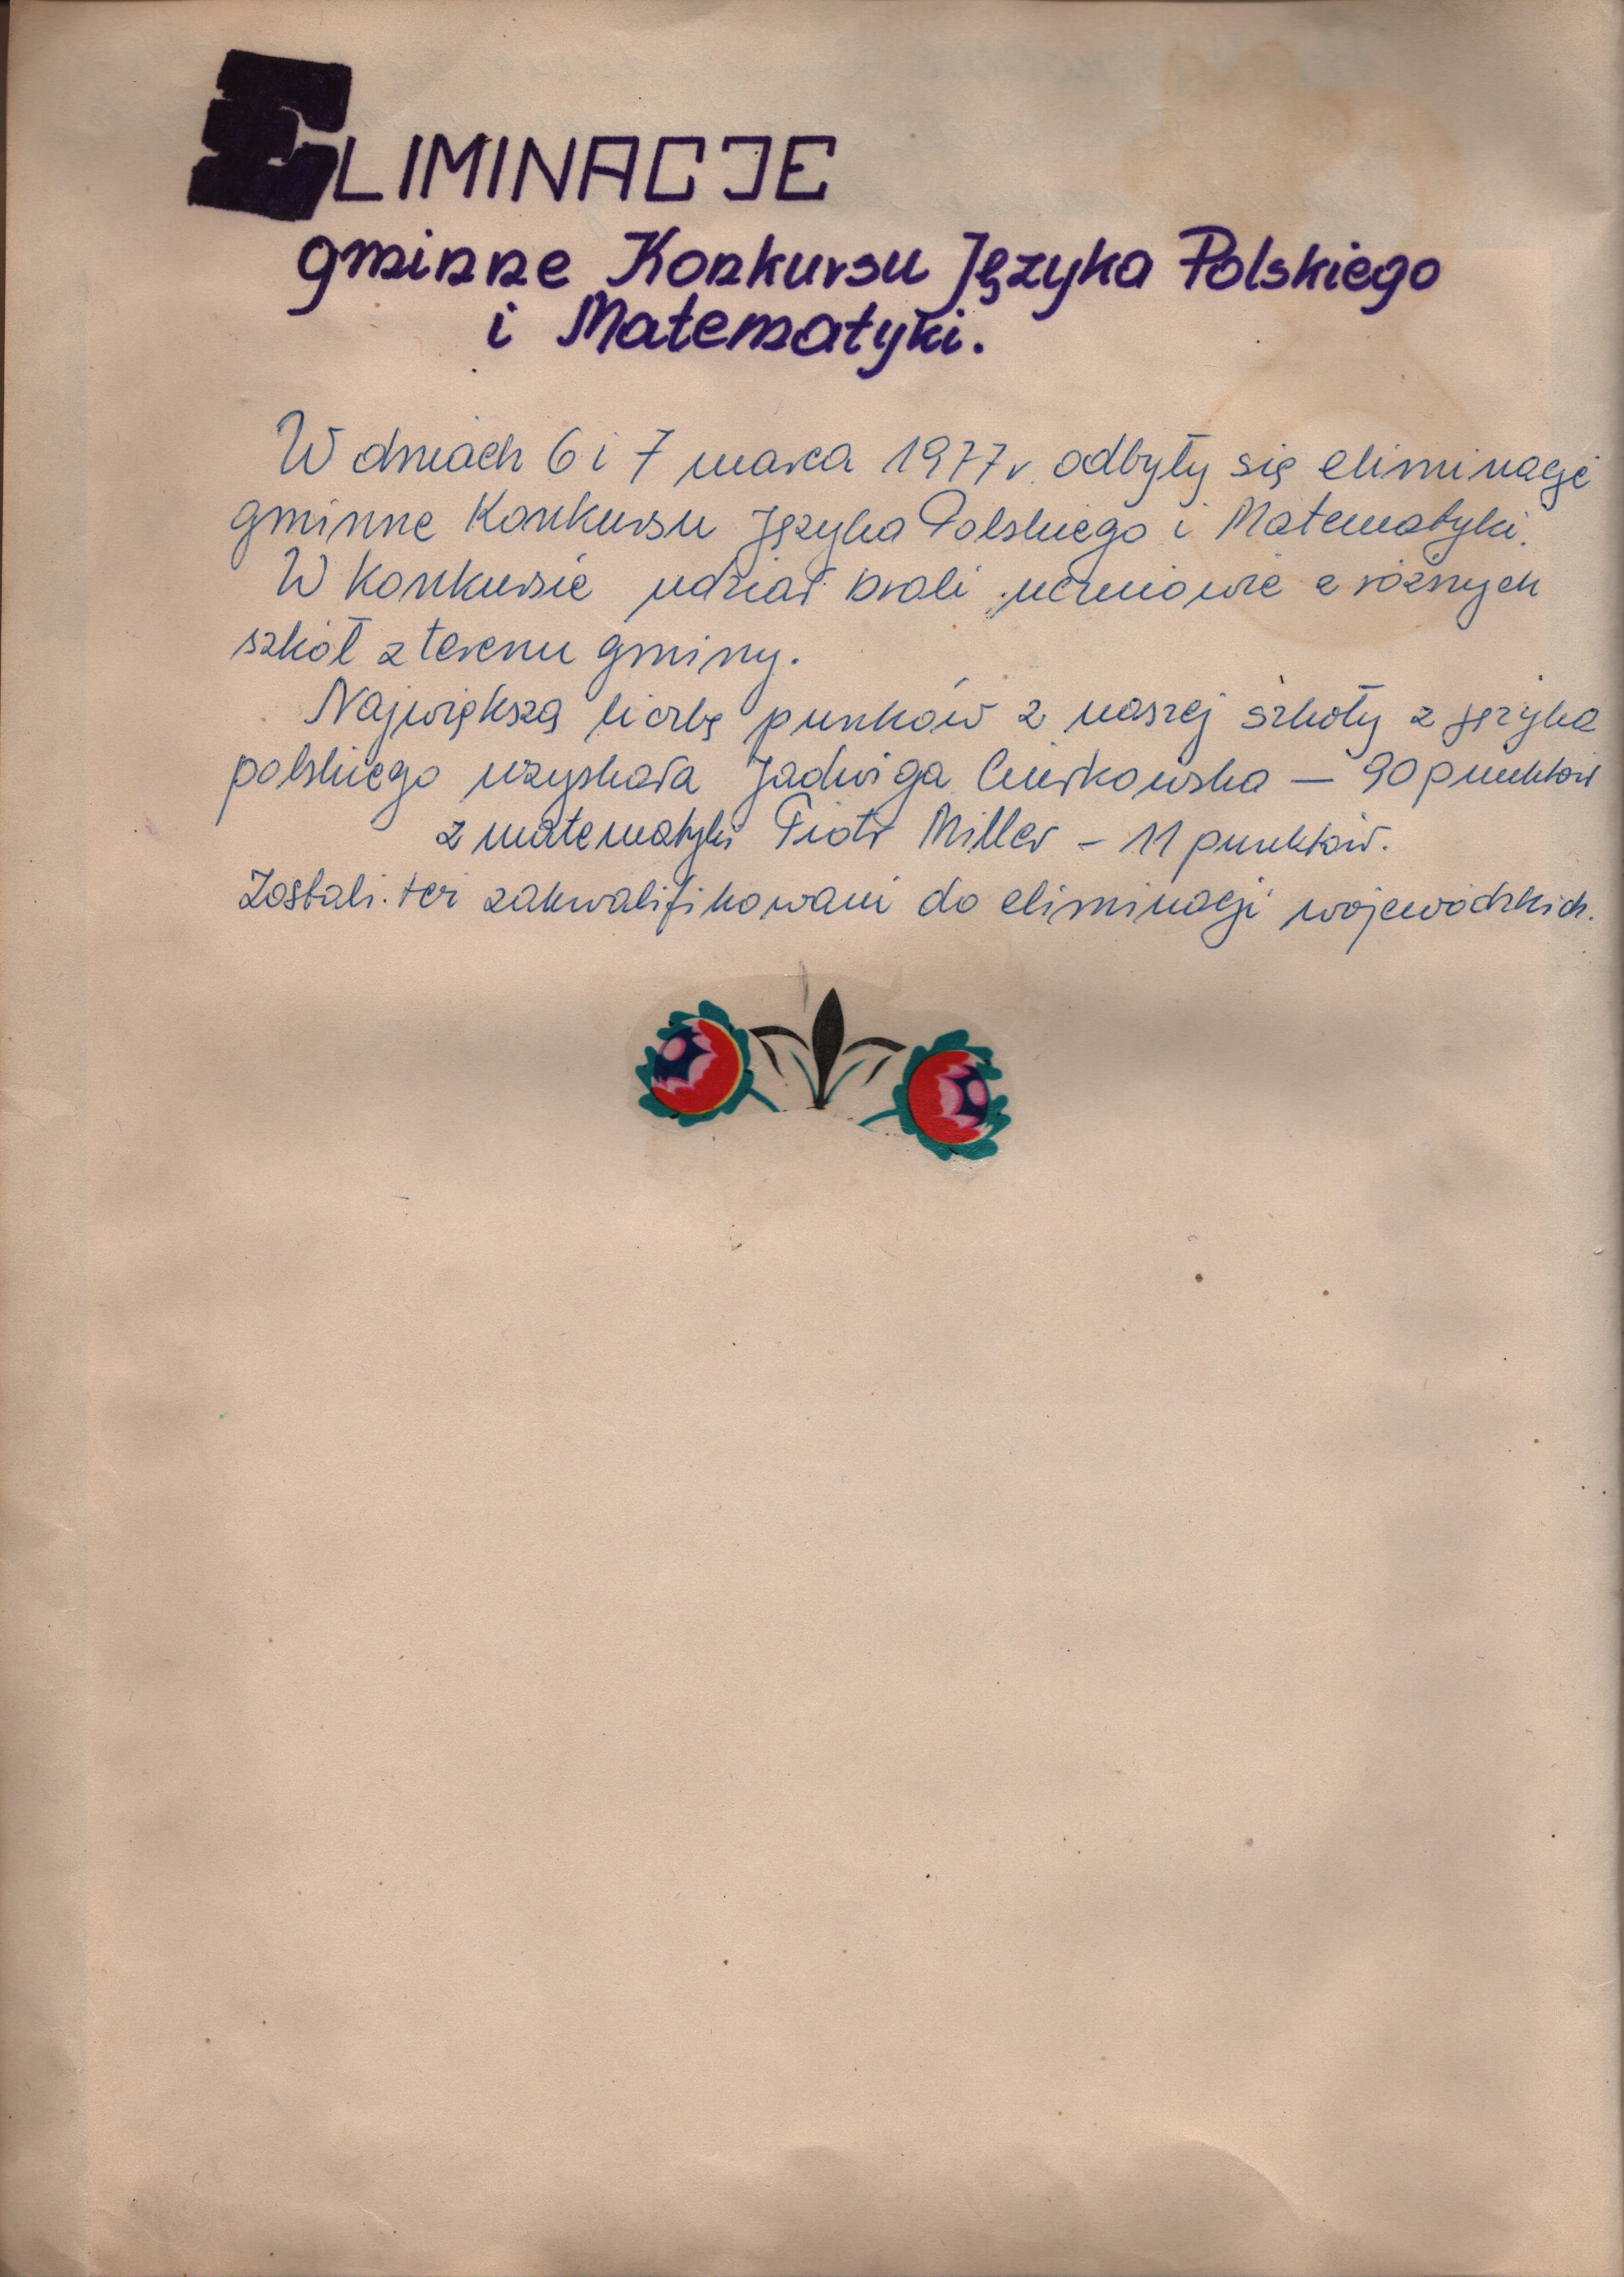 ELIMINACJE
gminne Konkursu Języka Polskiego
i Matematyki.
W dniach 6 i 7 marca 1977 r. odbyły się eliminacje
gminne Konkursu Języka Polskiego i Matematyki.
W Konkursie udział brali uczniowie z różnych
szkół z terenu gminy.
Największą liczbę punków z naszej szkoły z języka
polskiego uzyskała Jadwiga — 90 punktów
z matematyki Piotr Miller - 11 punktów.
Zostali też zakwalifikowani do eliminacji wojewódzkich.